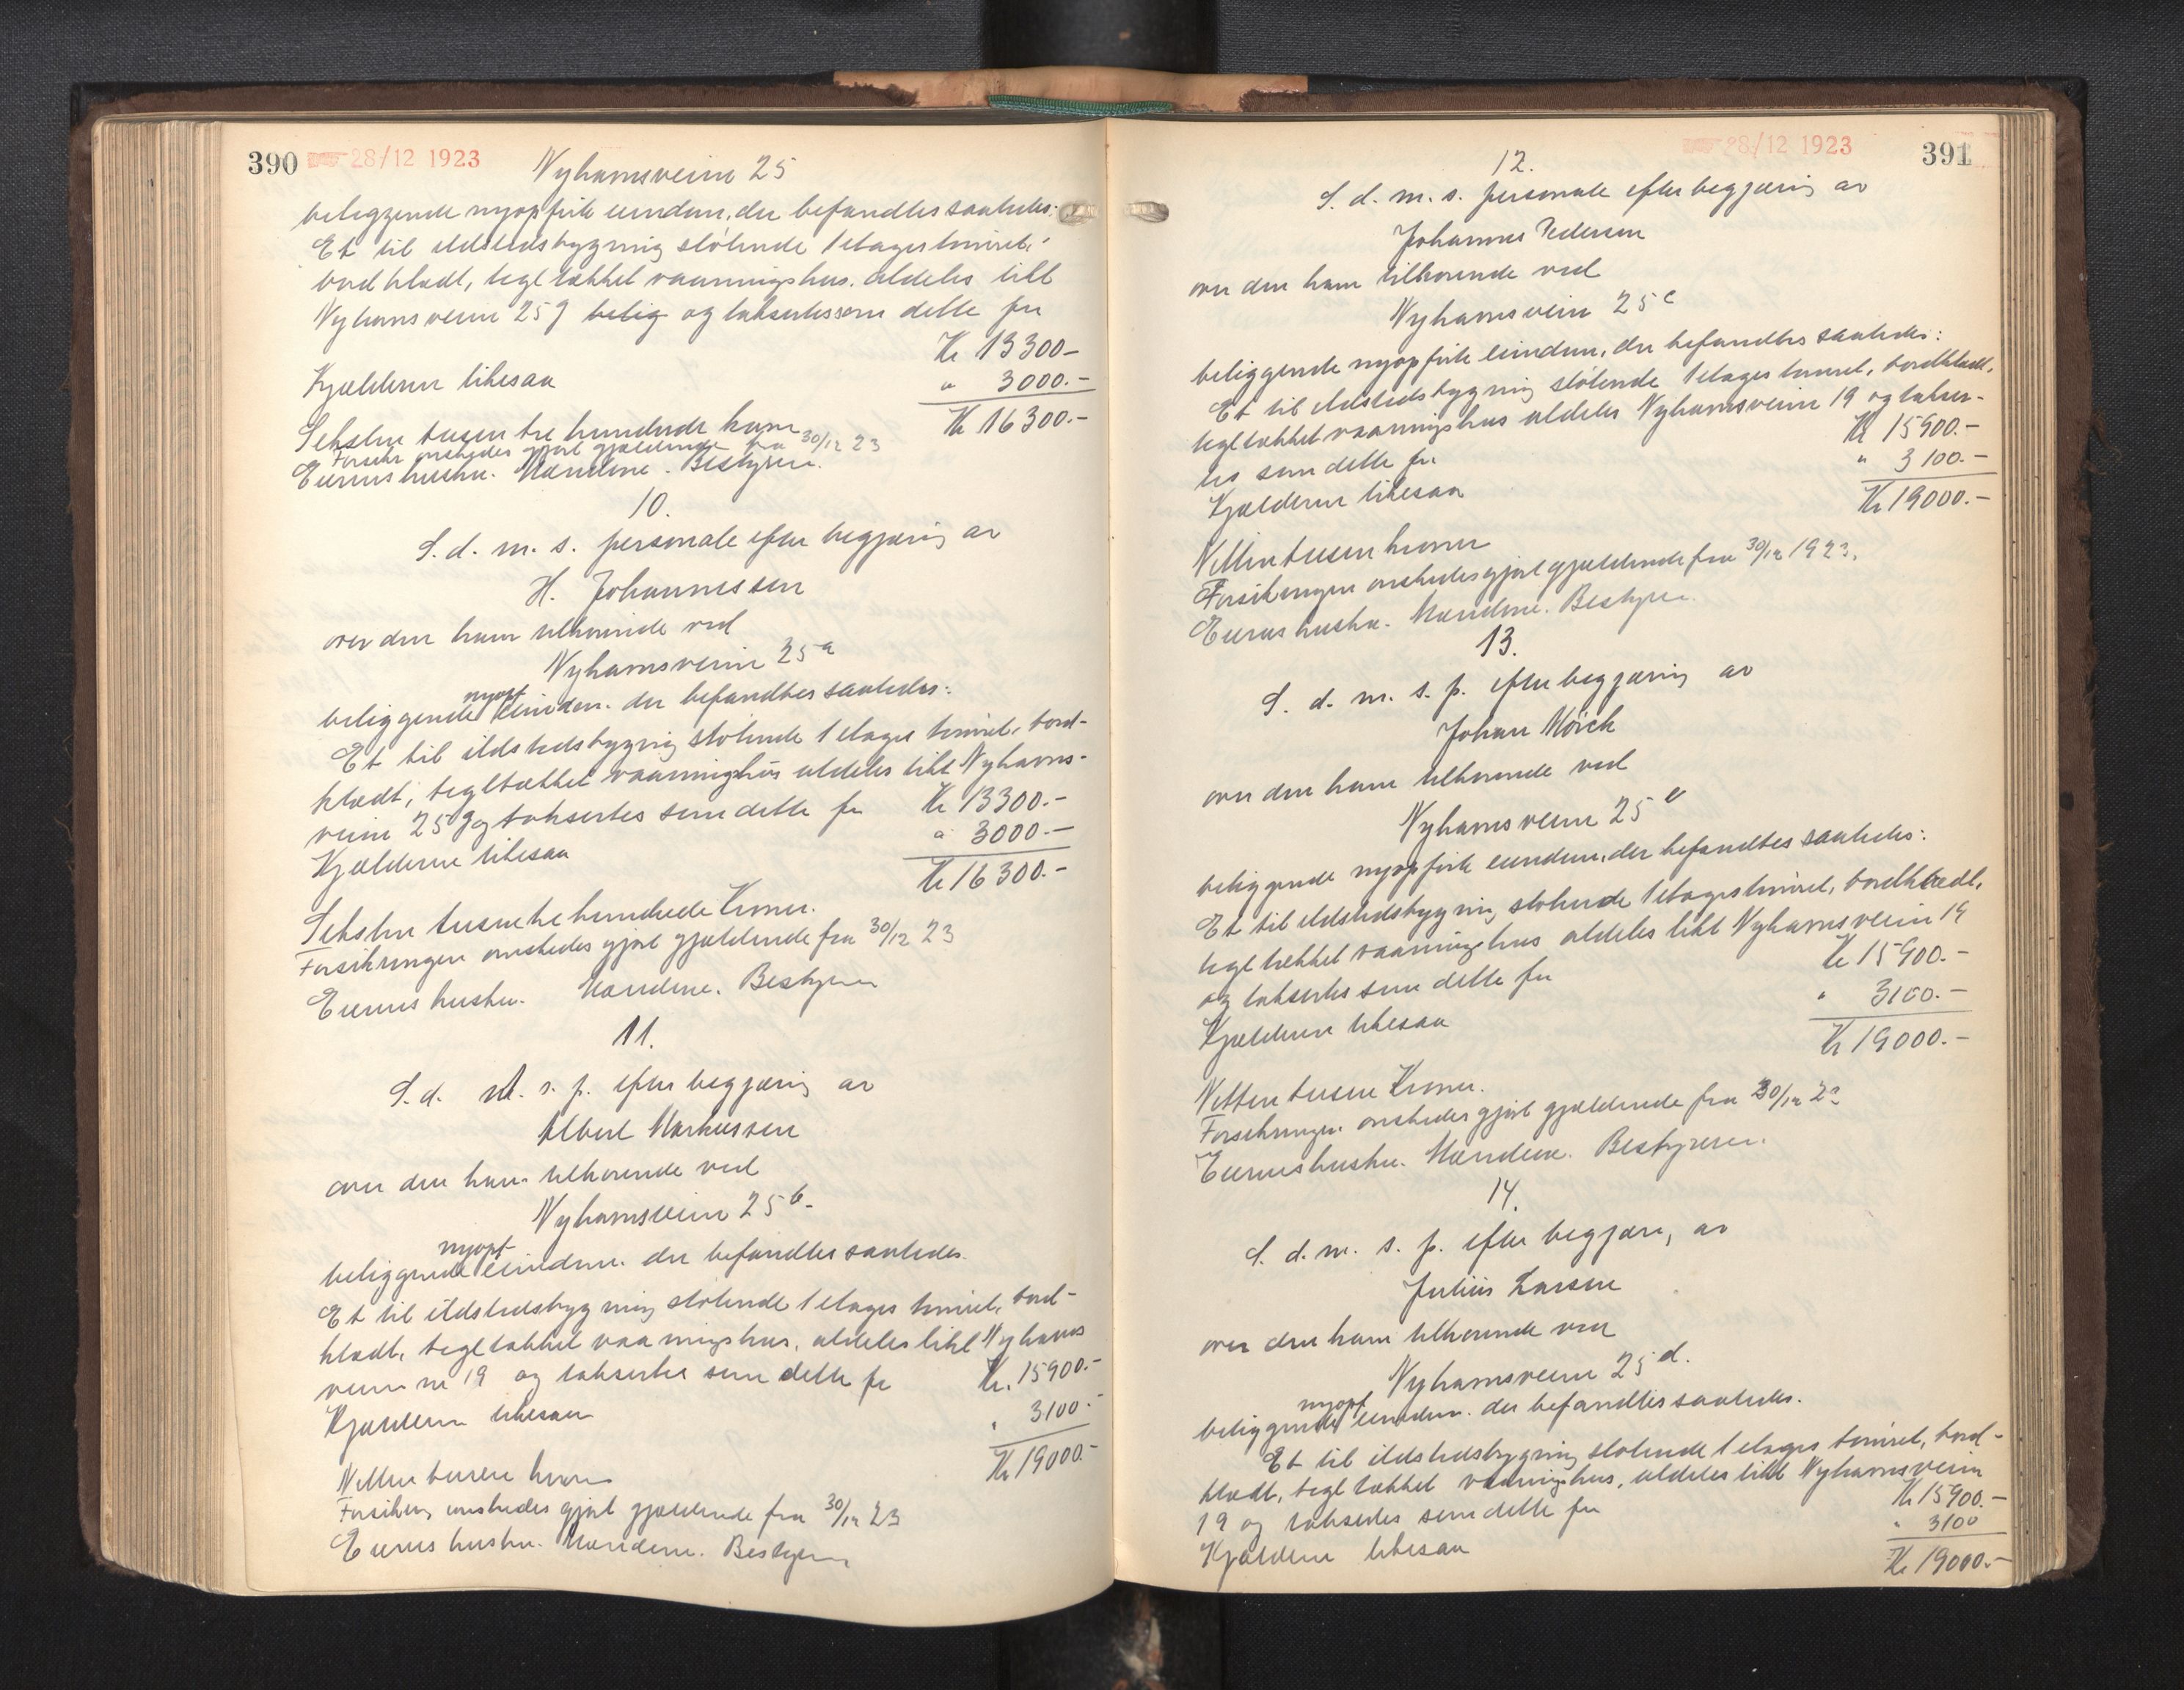 390 28/12 1923 Nyhavnsveien 25
beliggende nyopførte eiendom, der befandtes saaledes:
Et til ildstedsbygning støtende 1 etages tømret,
bordklædt, tegltækket vaaningshus. aldeles likt
Nyhavnsveien 25 g belig og takseres som dette for
Kr 13300-
Kjælderen likesaa " 3000.-
Kr 16300.-
Seksten tusen tre hundrede kroner
Forsikr ønskedes gjort gjældende fra 30/12 23
Eieren hustru. Mændene. Bestyreren.
10.
S. d. m. s. personale efter begjæring av
H. Johannessen
over den ham tilhørende ved
Nyhavnsveien 25 a
nyopf
beliggende eiendom. der befandtes saaledes:
Et til ildstedsbygning støtende 1 etages tømret, bord-
klædt, tegltækket vaaningshus aldeles likt Nyhavns-
veien 25 g og takseres som dette for Kr 13300.-
Kjælderen likesaa " 3000.-
Kr 16300.-
Seksten tusen tre hundrede Kroner.
Forsikringen ønskedes gjort gjældende fra 30/12 23
Eieren hustru. Mændene. Bestyreren
11.
S. d. m. s. p. efter begjæring av
Albert Markussen
over den ham tilhørende ved
Nyhavnsveien 25 b.
nyopf
beliggende eiendom. der befandtes saaledes.
Et til ildstedsbygning støtende 1 etages tømret, bord-
klædt, tegltækket vaaningshus, aldeles likt Nyhavns
veien nr 19 og takseres som dette for Kr. 15900.-
Kjælderen likesaa " 3100.-
Kr 19000.-
Nitten tusen kroner
Forsikring ønskedes gjort gjældende fra 30/12 23
Eieren hustru. Mændene. Bestyreren
28/12 1923 391
12.
S. d. m. s. personale efter begjæring av
Johannes Pedersen
over den ham tilhørende ved
Nyhavnsveien 25 c
beliggende nyopførte eiendom, der befandtes saaledes:
Et til ildstedsbygning støtende 1 etages tømret, bordklædt,
tegltækket vaaningshus aldeles Nyhavnsveien 19 og takser-
tes som dette for Kr 15900.-
Kjælderen likesaa " 3100.-
Kr 19000.-
Nitten tusen kroner
Forsikringen ønskedes gjort gjældende fra 30/12 1923.
Eieren hustru. Mændene. Bestyreren.
13.
S. d. m. s. p. efter begjæring av
Johan Mørch
over den ham tilhørende ved
Nyhavnsveien 25 e
beliggende nyopførte eiendom, der befandtes saaledes:
Et til ildstedsbygning støtende 1 etages tømret, bordklædt,
tegltækket vaaningshus aldeles likt Nyhavnsveien 19
og takseres som dette for Kr 15900.-
Kjælderen likesaa " 3100.-
Kr 19000.-
Nitten tusen Kroner.
Forsikringen ønskedes gjort gjældende fra 30/12 23
Eieren hustru. Mændene. Bestyreren.
14.
S. d. m. s. p. efter begjæring av
Julius Larsen
over den ham tilhørende ved
Nyhavnsveien 25 d.
nyopf
beliggende eiendom. der befandtes saaledes.
Et til ildstedsbygning støtende 1 etages tømret, bord-
klædt, tegltækket vaaningshus, aldeles likt Nyhavnsveien
19 og takseres som dette for Kr 15900.-
Kjælderen likesaa " 3100
Kr 19000.-